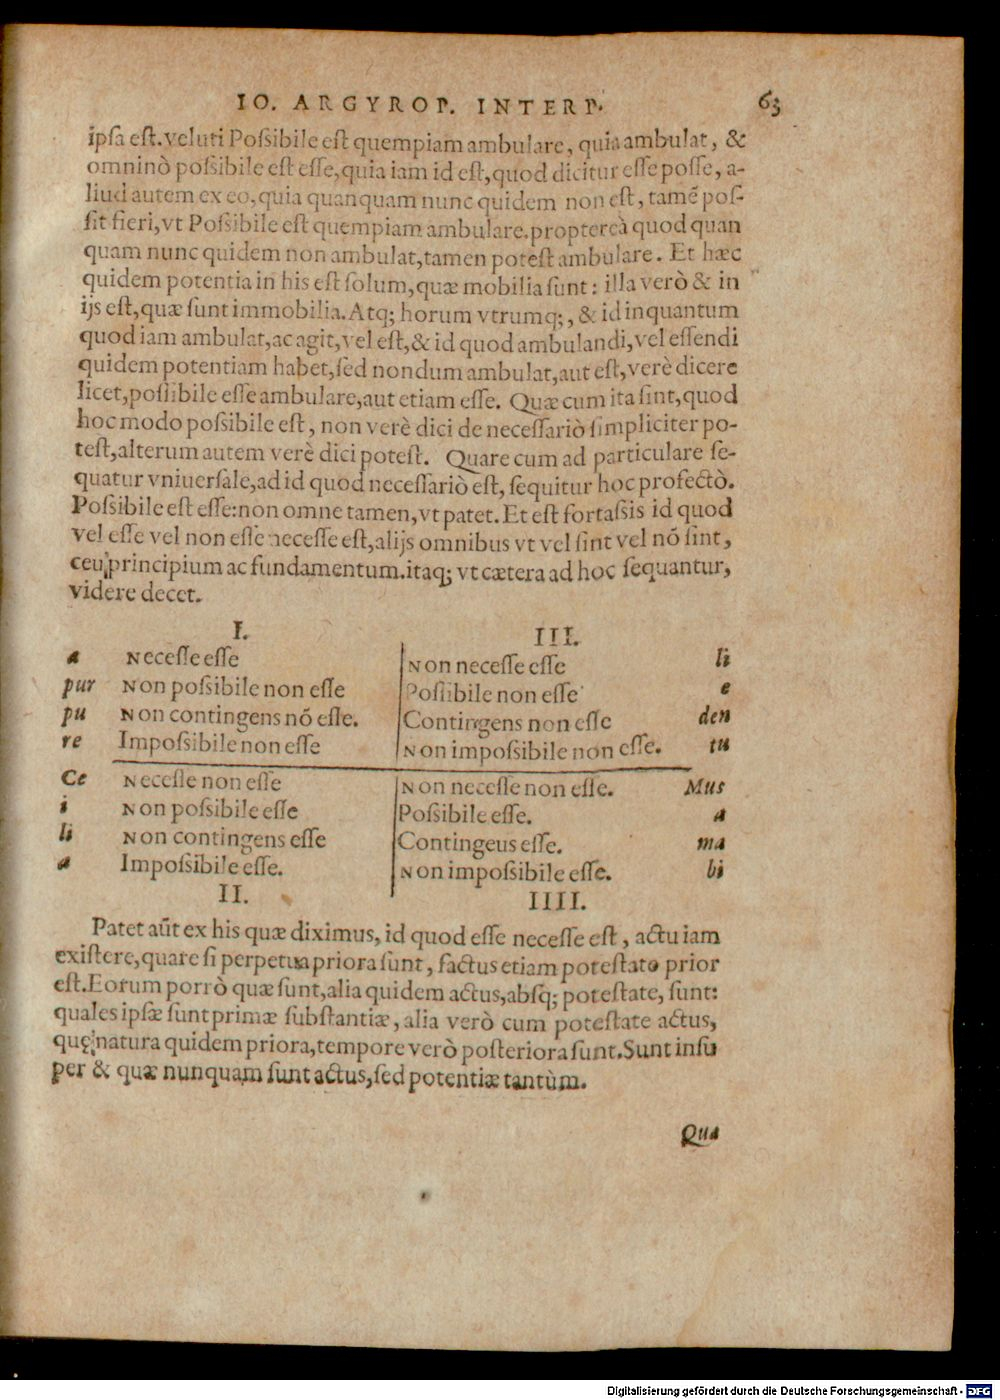 IO. ARGYROP. INTERP. 63
ipſa eſt. veluti Poſsibile eſt quempiam ambulare, quia ambulat, &
omninò poſsibile eſt eſſe, quia iam id eſt, quod dicitur eſſe poſſe, a-
liud autem ex eo, quia quanquam nunc quidem non eſt, tamē poſ-
ſit fieri, vt Poſsibile eſt quempiam ambulare. proptereà quod quan
quam nunc quidem non ambulat, tamen poteſt ambulare. Et hæc
quidem potentia in his eſt ſolum, quæ mobilia ſunt: illa verò & in
ijs eſt, quæ ſunt immobilia. Atq; horum vtrumq;, & id inquantum
quod iam ambulat, ac agit, vel eſt, & id quod ambulandi, vel eſſendi
quidem potentiam habet, ſed nondum ambulat, aut eſt, verè dicere
licet, poſsibile eſſe ambulare, aut etiam eſſe. Quæ cum ita ſint, quod
hoc modo poſsibile eſt, non verè dici de neceſſariò ſimpliciter po-
teſt, alterum autem verè dici poteſt. Quare cum ad particulare ſe-
quatur vniuerſale, ad id quod neceſſariò eſt, ſequitur hoc profectò.
Poſsibile eſt eſſe: non omne tamen, vt patet. Et eſt fortaſsis id quod
vel eſſe vel non eſſe neceſſe eſt, alijs omnibus vt vel ſint vel nō ſint,
ceu principium ac fundamentum. itaq; vt cætera ad hoc ſequantur,
videre decet.
I. III.
a Neceſſe eſſe Non neceſſe eſſe li
pur Non poſsibile non eſſe Poſsibile non eſſe e
pu Non contingens nō eſſe. Contingens non eſſe den
re Impoſsibile non eſſe Non impoſsibile non eſſe. tu
Ce Neceſſe non eſſe Non neceſſe non eſſe. Mus
i Non poſsibile eſſe Poſsibile eſſe. a
li Non contingens eſſe Contingeus eſſe. ma
a Impoſsibile eſſe. Non impoſsibile eſſe. bi
II. IIII.
Patet aūt ex his quæ diximus, id quod eſſe neceſſe eſt, actu iam
exiſtere, quare ſi perpetua priora ſunt, factus etiam poteſtate prior
eſt. Eorum porrò quæ ſunt, alia quidem actus, abſq; poteſtate, ſunt:
quales ipſæ ſunt primæ ſubſtantiæ, alia verò cum poteſtate actus,
quę natura quidem priora, tempore verò poſteriora ſunt. Sunt inſu
per & quæ nunquam ſunt actus, ſed potentiæ tantùm.
Qua
Digitalisierung gefördert durch die Deutsche Forschungsgemeinschaft - DFG